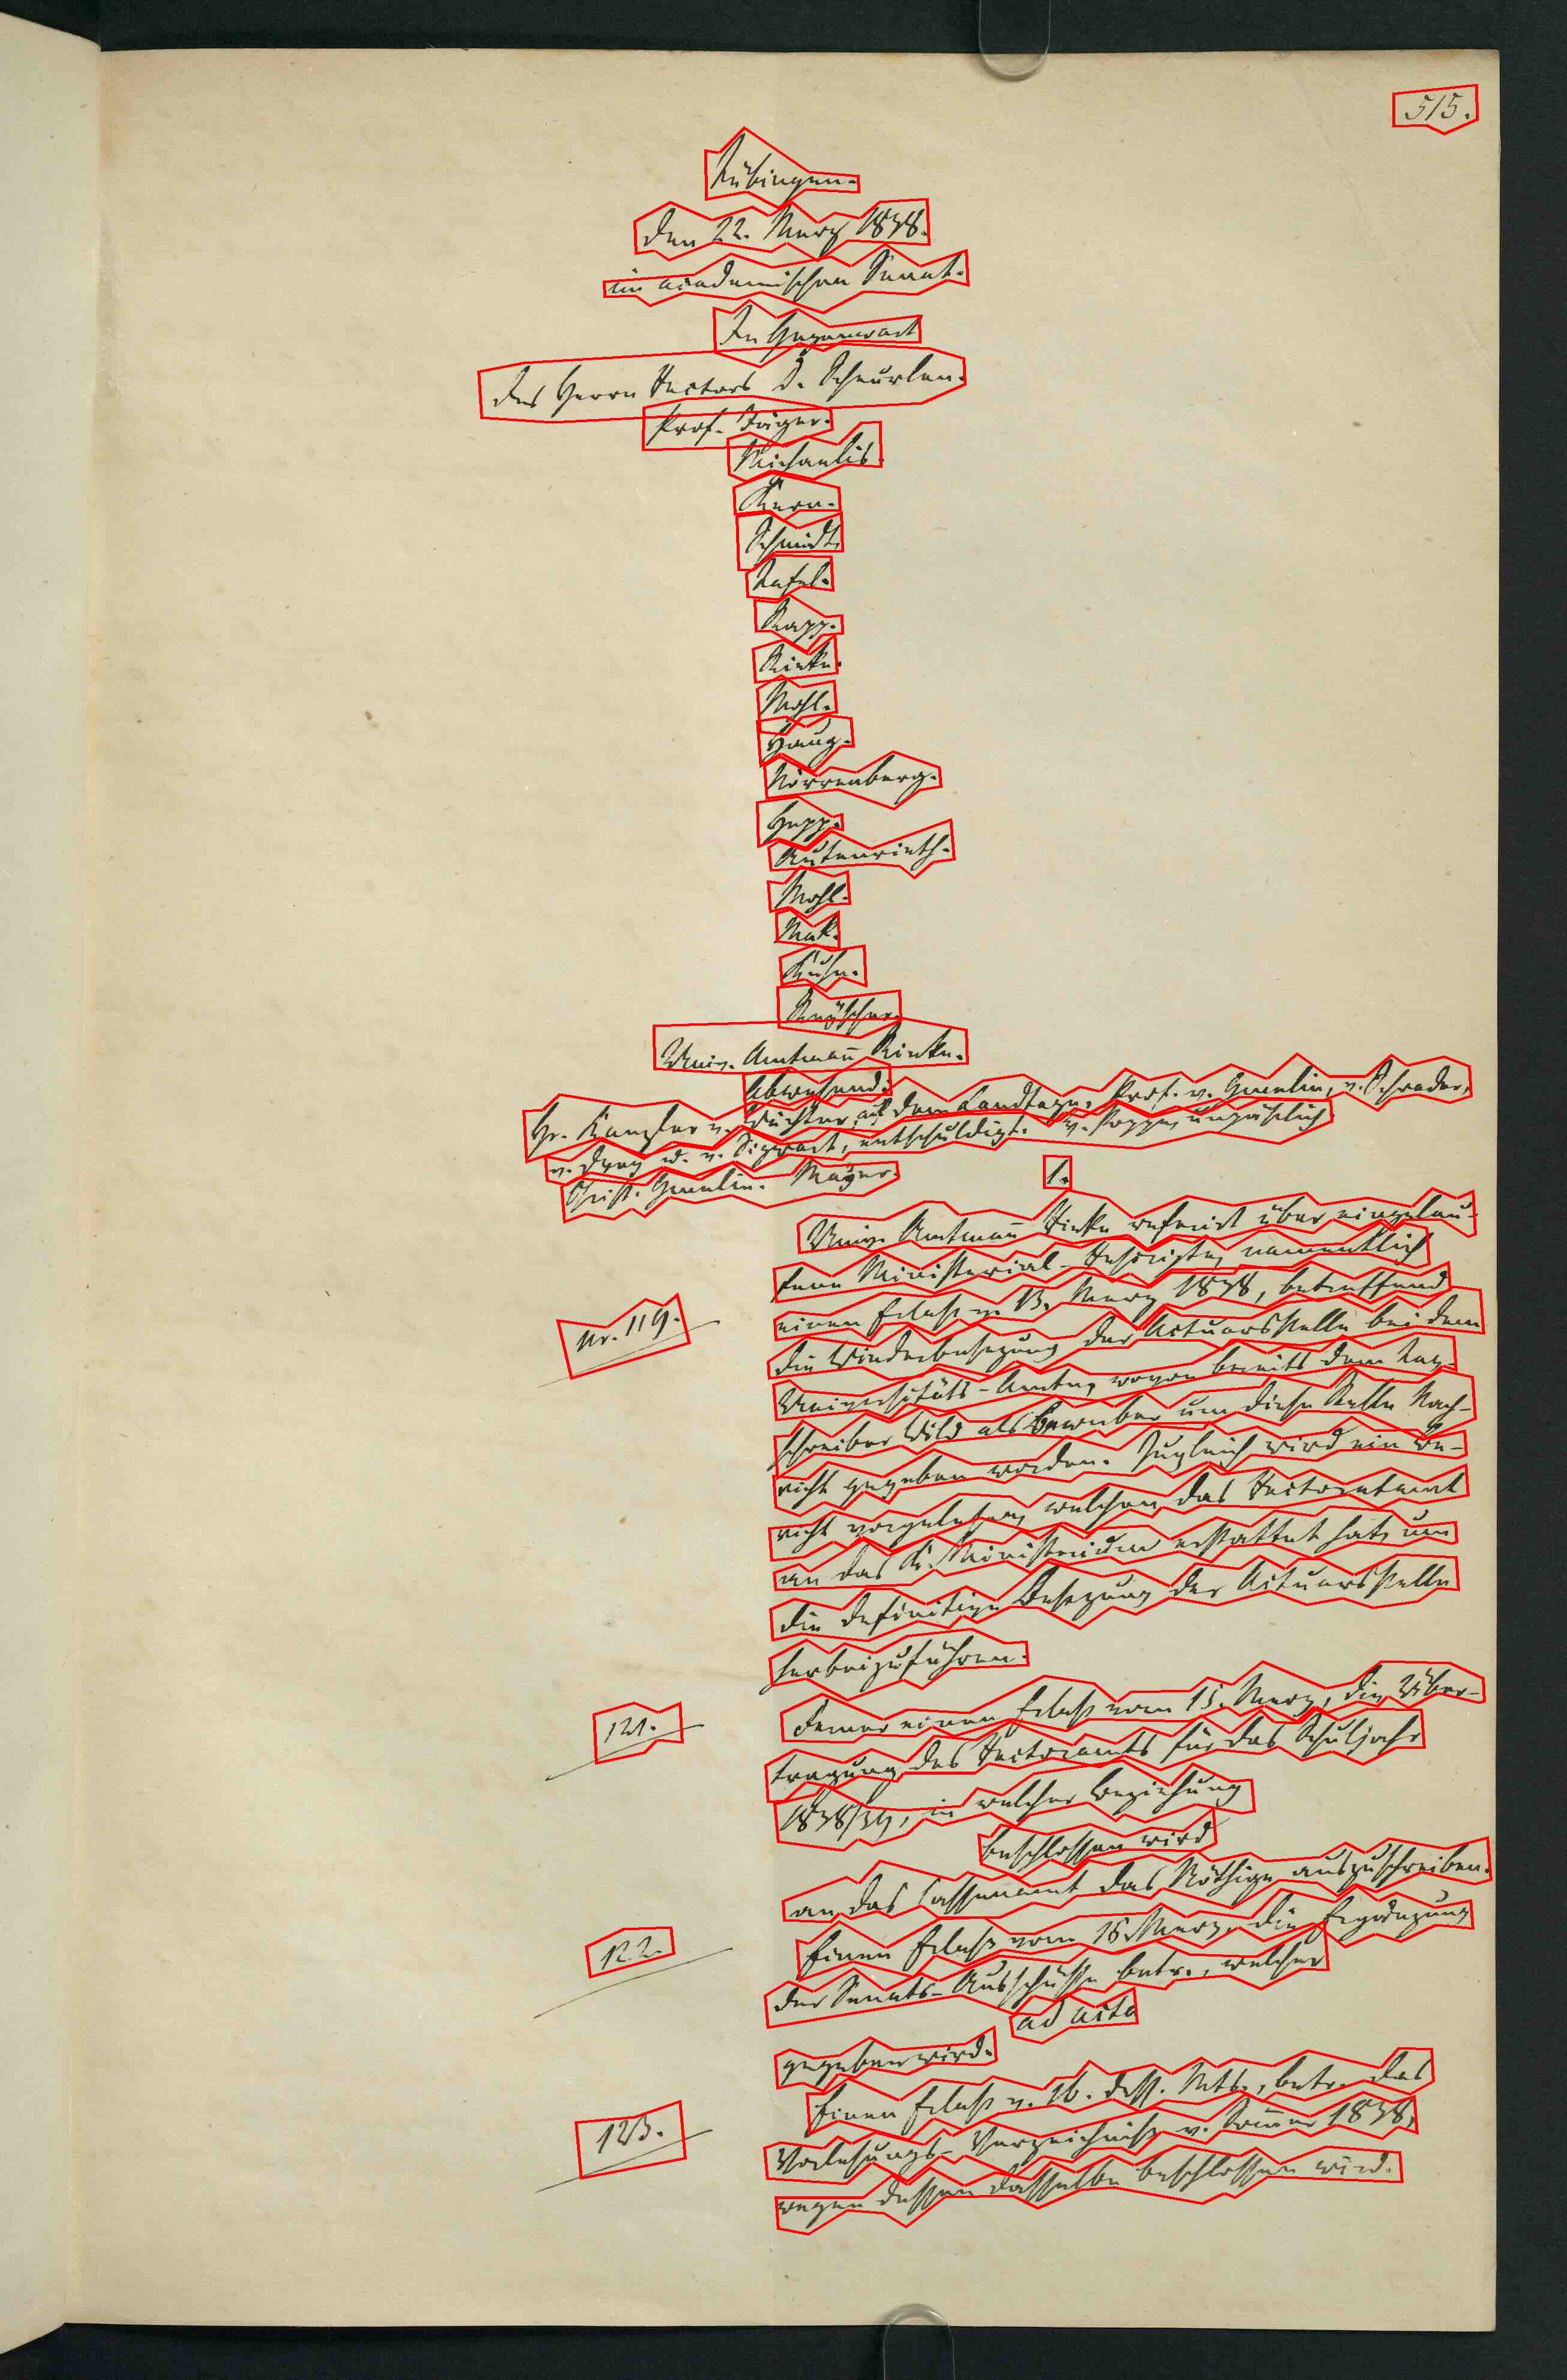 515.
Tübingen.
den 22. Merz 1838.
im academischen Senat.
In Gegenwart
des Herrn Rectors D. Scheurlen.
Prof. Jäger.
Michaelis.
Kern.
Schmidt.
Tafel.
Rapp.
Rieke.
Mohl.
Haug.
Nörrenberg.
Hepp.
Autenrieth.
Mohl.
Mak.
Kuhn.
Reyscher.
Univ. Amtmañ Rieke.
Abwesend:
Hr. Kanzler v. Wächter, auf dem Landtage, Prof. v. Gmelin, v. Schrader,
v. Drey u. v. Sigwart, entschuldigt. v. Poppe, unpäßlich
Christ. Gmelin. Mayer.
1.
Univ. Amtmañ Rieke referirt über eingelau-
fene Ministerial-Rescripte, namentlich
Nr. 119.
einen Erlaß v. 13. Merz 1838, betreffend
die Wiederbesezung der Actuarsstelle bei dem
Universitäts-Amte, wovon bereits dem Tag-
schreiber Wild als Bewerber um diese Stelle Nach-
richt gegeben worden. Zugleich wird ein Be-
richt vorgelesen, welchen das Rectoratamt
an das K. Ministerium erstattet hat, um
die definitive Besezung der Actuarsstelle
herbeizuführen.
121.
Ferner einen Erlaß vom 15. Merz, die Über-
tragung des Rectoramts für das Schuljahr
1838/39, in welcher Beziehung
beschlossen wird
an das Cassenamt das Nöthige auszuschreiben.
122.
Einen Erlaß vom 16. Merz, die Ergänzung
der Senats-Ausschüsse betr., welcher
ad acta
gegeben wird.
123.
Einen Erlaß v. 16. dss. Mts., betr. das
Vorlesungs-Verzeichniß v. Som̄er 1838,
wegen dessen dasselbe beschlossen wird.